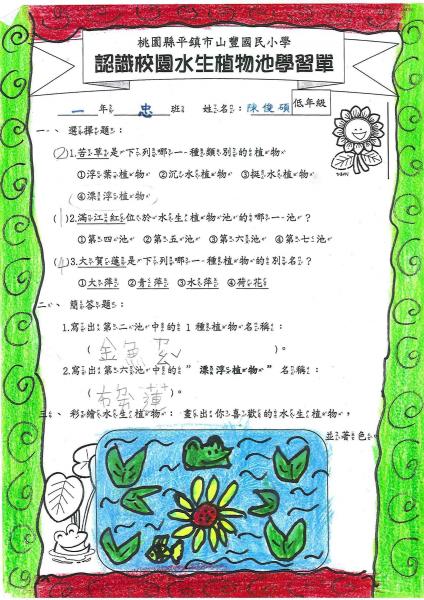 桃園縣平鎮市山豐國民小學
認識校園水生植物池學習單
一年忠班 姓名:陳俊碩 低年級
一、選擇題:
(2)1.苦草是下列哪一種類別的植物
①浮葉植物 ②沉水植物 ③挺水植物
④漂浮植物
(1)2.滿江紅位於水生植物池的哪一池?
①第四池 ②第五池 ③第六池 ④第七池
(4)3.大賀蓮是下列哪一種植物的別名?
①大萍 ②青萍 ③水萍 ④荷花
二、簡答題:
1.寫出第二池中的1種植物名稱:
(金魚)。
2.寫出第六池中的"漂浮植物"名稱:
(布袋蓮)。
三、彩繪水生植物:畫出你喜歡的水生植物,
並著色